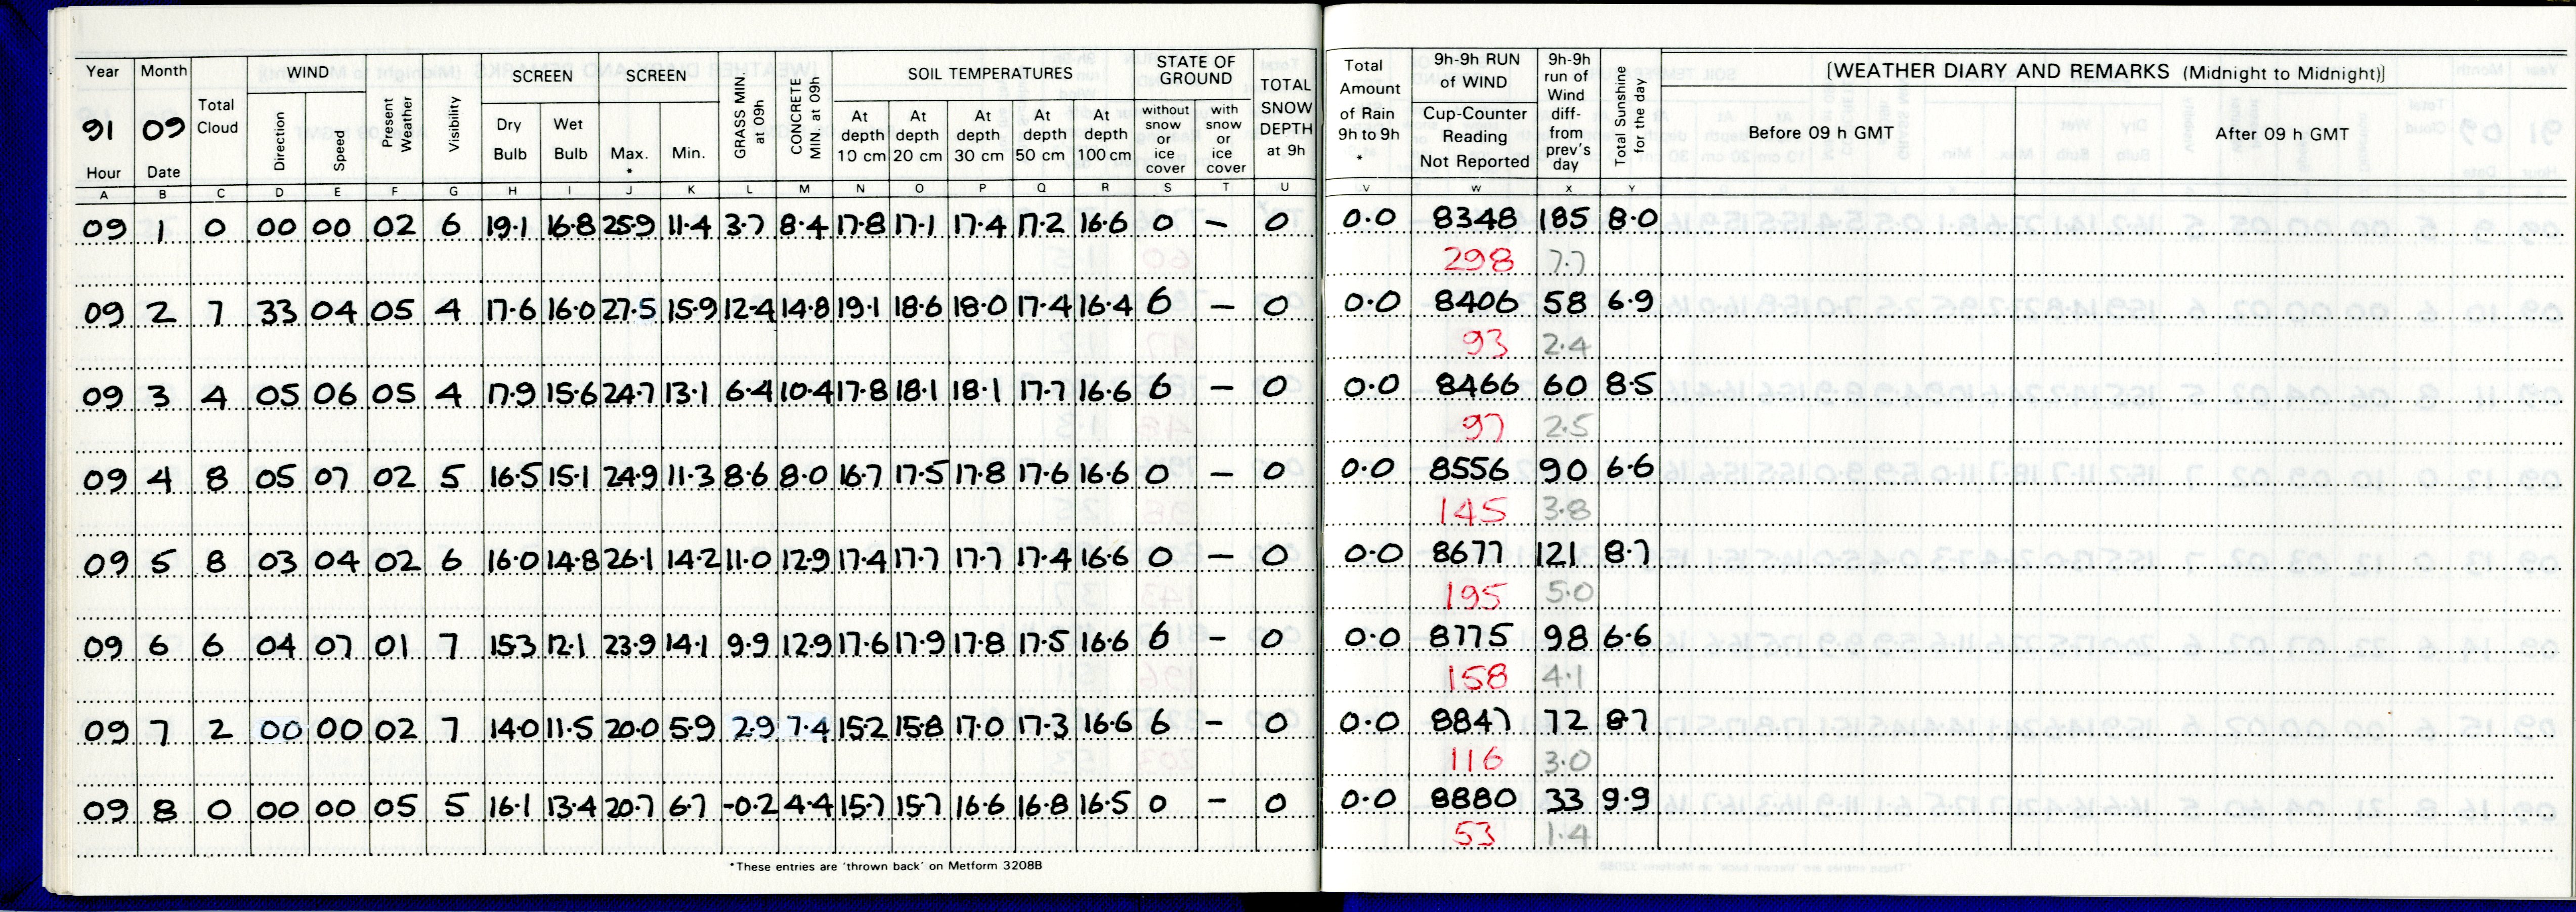 Year Month Total Cloud WIND Present Weather Visibility SCREEN SCREEN GRASS MIN at 09h CONCRETE MIN at 09h SOIL TEMPERATURES STATE OF GROUND TOTAL SNOW DEPTH at 9h Total Amount of Rain 9h to 9h * 9h-9h RUN of WIND 9h-9h run of Wind diff-from prev's day Total Sunshine for the day [WEATHER DIARY AND REMARKS (Midnight to Midnight)]
91 09 Direction Speed Dry Bulb Wet Bulb Max. * Min. At depth 10 cm At depth 20 cm At depth 30 cm At depth 50 cm At depth 100 cm without snow or ice cover with snow or ice cover Cup-Counter Reading Not Reported Before 09 h GMT After 09 h GMT
Hour Date
A B C D E F G H I J K L M N O P Q R S T U V W X Y
09 1 0 00 00 02 6 19.1 16.8 25.9 11.4 3.7 8.4 17.8 17.1 17.4 17.2 16.6 0 – 0 0.0 8348 185 8.0
298 7.7
09 2 7 33 04 05 4 17.6 16.0 27.5 15.9 12.4 14.8 19.1 18.6 18.0 17.4 16.4 6 – 0 0.0 8406 58 6.9
93 2.4
09 3 4 05 06 05 4 17.9 15.6 24.7 13.1 6.4 10.4 17.8 18.1 18.1 17.7 16.6 6 – 0 0.0 8466 60 8.5
97 2.5
09 4 8 05 07 02 5 16.5 15.1 24.9 11.3 8.6 8.0 16.7 17.5 17.8 17.6 16.6 0 – 0 0.0 8556 90 6.6
145 3.8
09 5 8 03 04 02 6 16.0 14.8 26.1 14.2 11.0 12.9 17.4 17.7 17.7 17.4 16.6 0 – 0 0.0 8677 121 8.7
195 5.0
09 6 6 04 07 01 7 15.3 12.1 23.9 14.1 9.9 12.9 17.6 17.9 17.8 17.5 16.6 6 – 0 0.0 8775 98 6.6
158 4.1
09 7 2 00 00 02 7 14.0 11.5 20.0 5.9 2.9 7.4 15.2 15.8 17.0 17.3 16.6 6 – 0 0.0 8847 72 8.7
116 3.0
09 8 0 00 00 05 5 16.1 13.4 20.7 6.7 -0.2 4.4 15.7 15.7 16.6 16.8 16.5 0 – 0 0.0 8880 33 9.9
53 1.4
*These entries are 'thrown back' on Metform 3208B